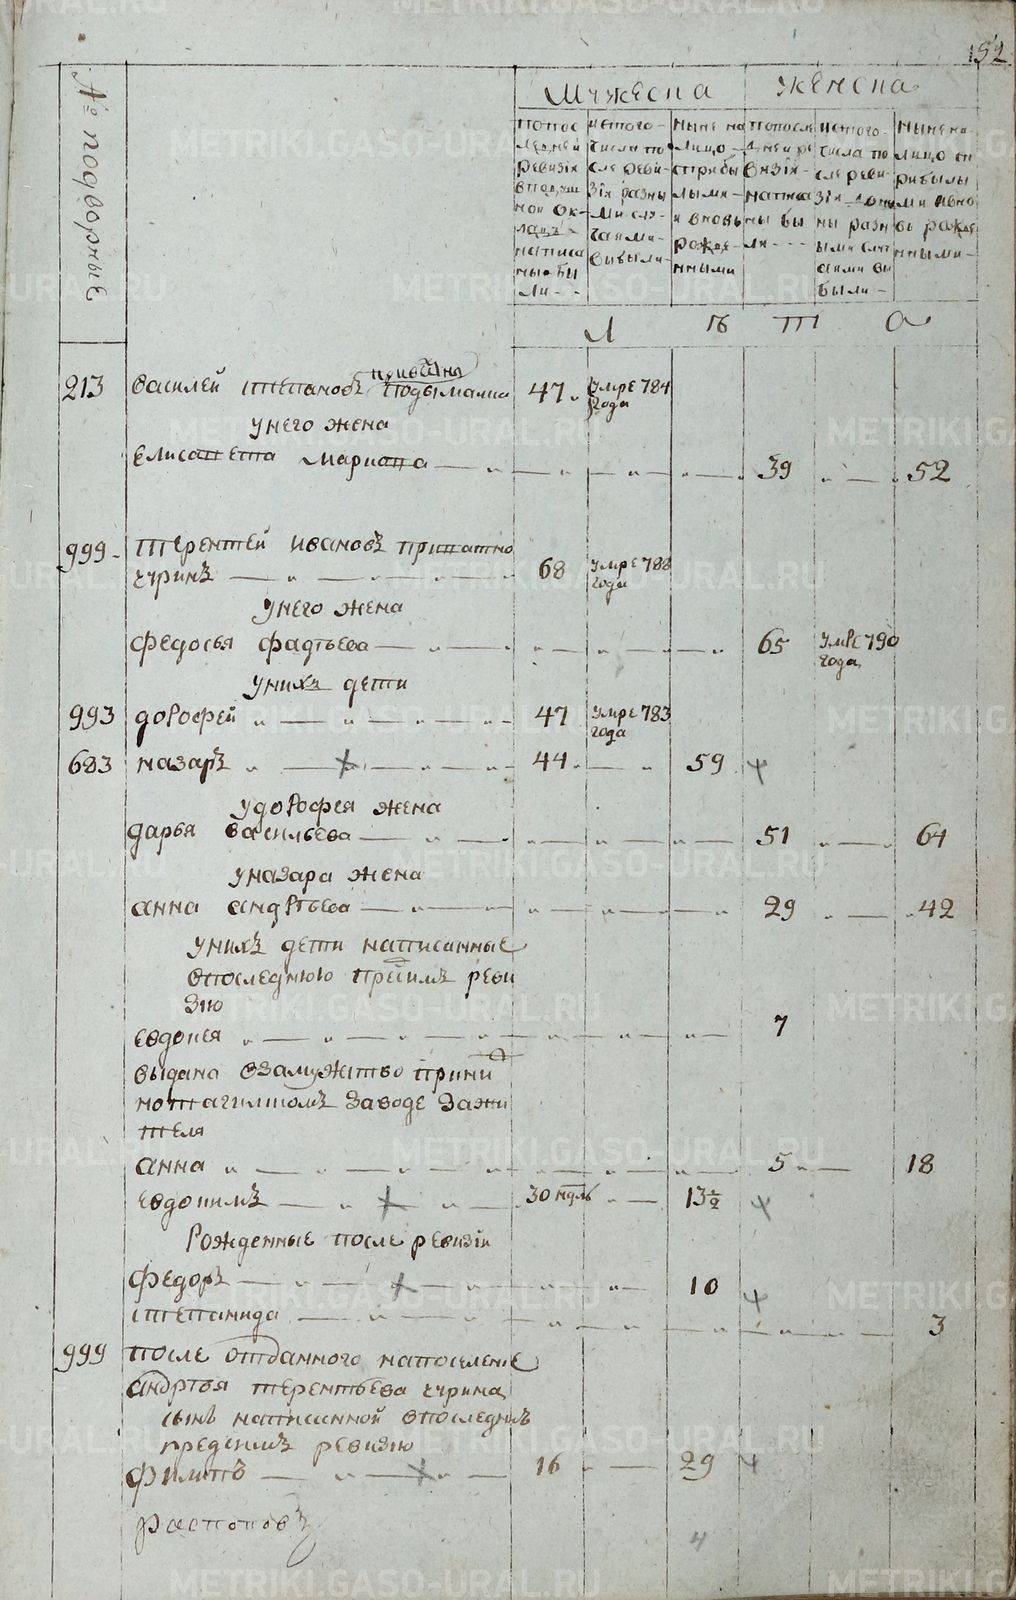 152
№ подворные
мужеска
женска
попос
ледней
ревизіи
вподуш
ной ок
ладъ
написа
ны бы
ли
изтого
числа по
сле реви
зіи разны
ми слу
чаями
выбыли
ныне на
лицо
сприбы
лыми
и вновь
рожде
нными
попосле
дней ре
визіи
написа
ны бы
ли
изтого
числа по
сле реви
зіи
ны разн
ыми случ
аями вы
были
ныне на
лицо сп
рибылы
ми ивно
вь рожде
нными
л ѣ т а
213 василей степановъ подымкина 47 умре 784
года
унего жена
Елисавета Маркова 39 52
999 терентей ивановъ
чуринъ 68 умре 788
года
унего жена
федосья фадѣева 65 умре 790
года
унихъ дети
993 дорофей 47 умре 783
года
683 назаръ 44 59
удорофея жена
дарья васильева 51 64
уназара жена
анна андрѣева 29 42
унихъ дети написанные
впоследнюю пресимъ реви
зию
евдокея 7
выдана взамужство
нотагилскомъ заводе зажи
теля
анна 5 18
евдокимъ 30 ндль 13½
Рожденные после ревизіи
федоръ 10
степанида 3
999 после отданного напоселение
андрѣя терентьева чурина
сынъ написанной впоследнюю
предсимъ ревизию
филипъ 16 29
распоповъ
4
METRIKI.GASO-URAL.RU